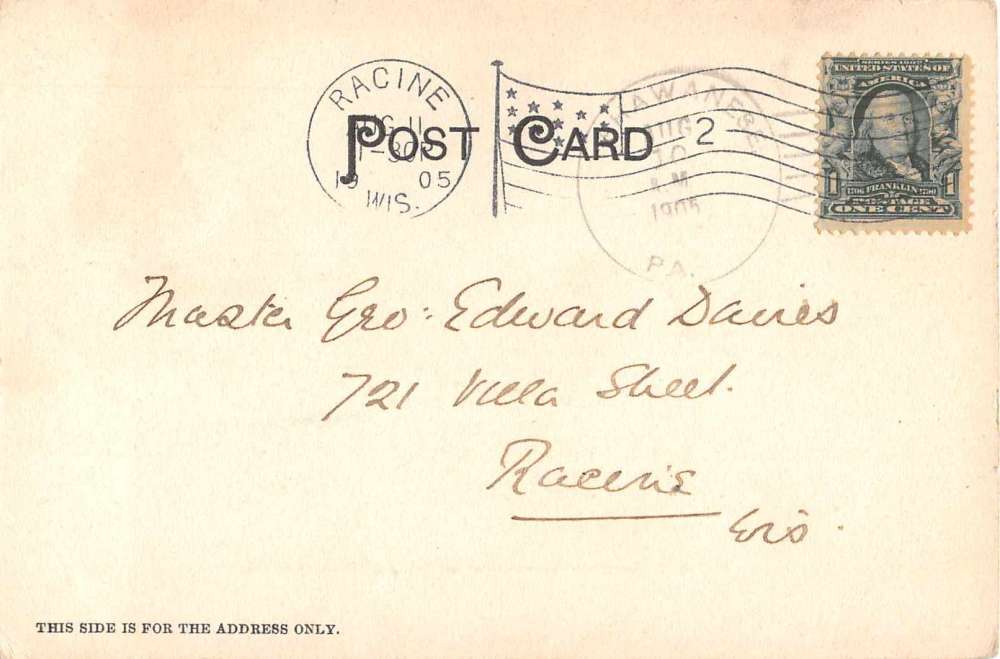 RACINE
11
1905
WIS.
POST CARD
2
AUG
10
M
1905
PA.
SERIES 1902
UNITED STATES OF
AMERICA
1 FRANKLIN 1
POSTAGE
ONE CENT
Master Geo: Edward Davies
721 Villa Street.
Racine
Wis.
THIS SIDE IS FOR THE ADDRESS ONLY.